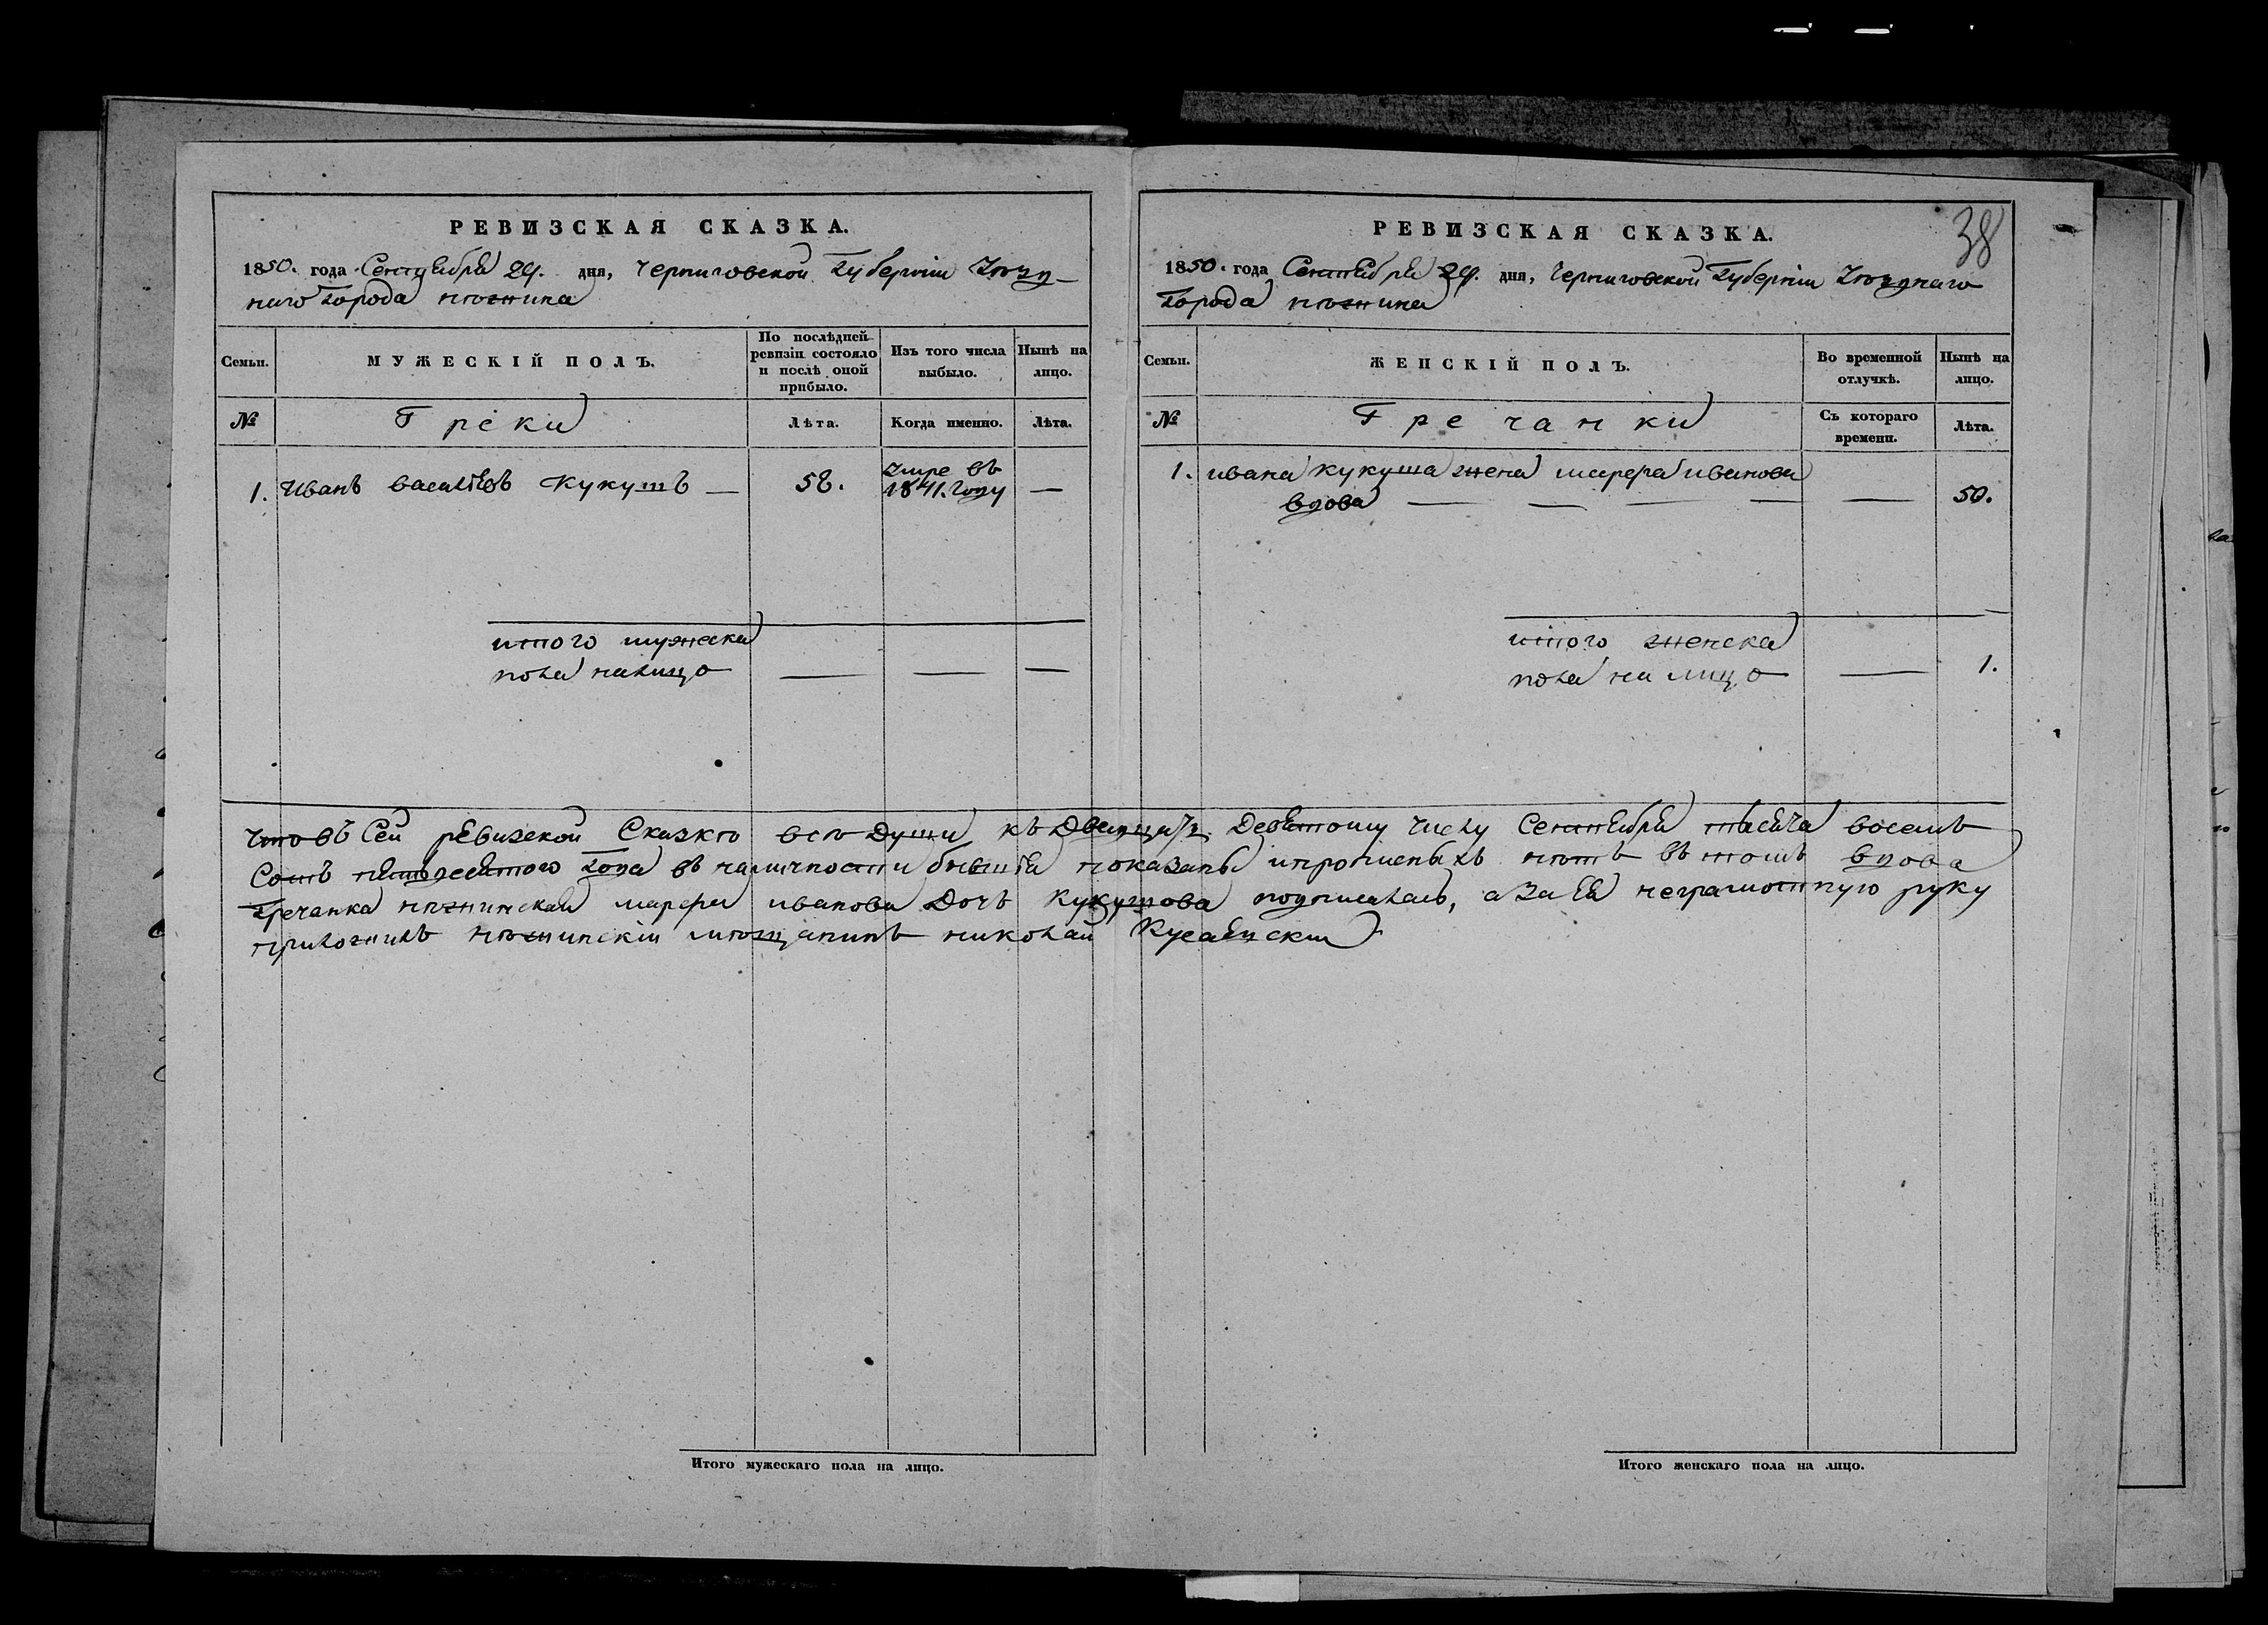 РЕВИЗСКАЯ СКАЗКА.
1850. года Сентября 29. дня, Черниговской Губерніи Уѣзд-
наго Города нѣжина
Семьи.
МУЖЕСКІЙ ПОЛЪ.
По послѣдней ревизіи состояло и послѣ оной прибыло.
Изъ того числа выбыло.
Нынѣ на лицо.
№
Греки
Лѣта.
Когда именно.
Лѣта.
1. Иванъ васильевъ Кукушъ — 58. умре въ 1841. году —
итого мужеска
пола налицо — — —
Итого мужескаго пола на лицо.
38
РЕВИЗСКАЯ СКАЗКА.
1850. года Сентября 29. дня, Черниговской Губерніи Уѣзднаго
Города нѣжина
Семьи.
ЖЕНСКІЙ ПОЛЪ.
Во временной отлучкѣ.
Нынѣ на лицо.
№
Гречанки
Съ котораго времени.
Лѣта.
1. ивана кукуша жена марфа иванова
вдова — — — — — 50.
итого женска
пола на лицо — 1.
Итого женскаго пола на лицо.
Что въ Сей ревизской Сказкѣ всѣ Души къ Двадцать Девятому числу Сентября тысяча восемь
Сотъ пятьдесятого Года въ наличности бывшія показаны и прописныхъ нѣтъ въ томъ вдова
Гречанка нѣжинская марфа иванова Дочь Кукушова подписалась, а За Ея неграмотную руку
приложилъ нѣжинскій мѣщанинъ николай